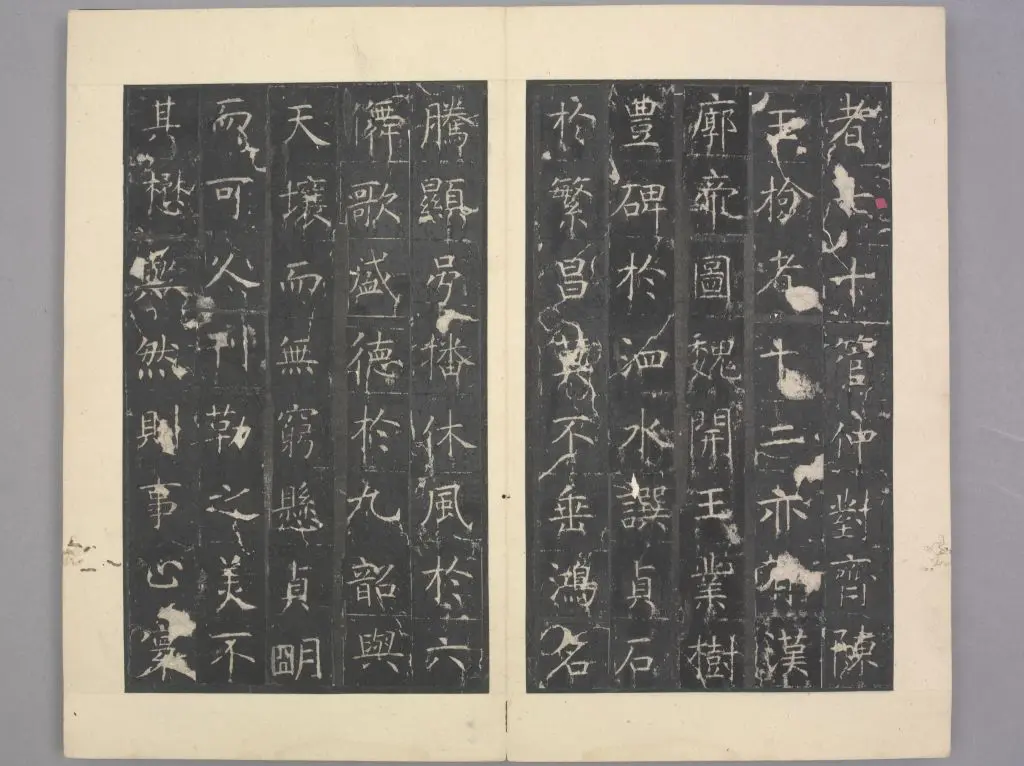 者七十管仲對齊陳
玉檢者十二亦有漢
廓帝圖魏開王業樹
豊碑於洹水譔貞石
於繁昌莫不垂鴻名
騰顯号播休風於六
儛歌盛德於九韶與
天壤而無窮懸貞朙
而可久刊勒之美不
其懋與然則事止寰